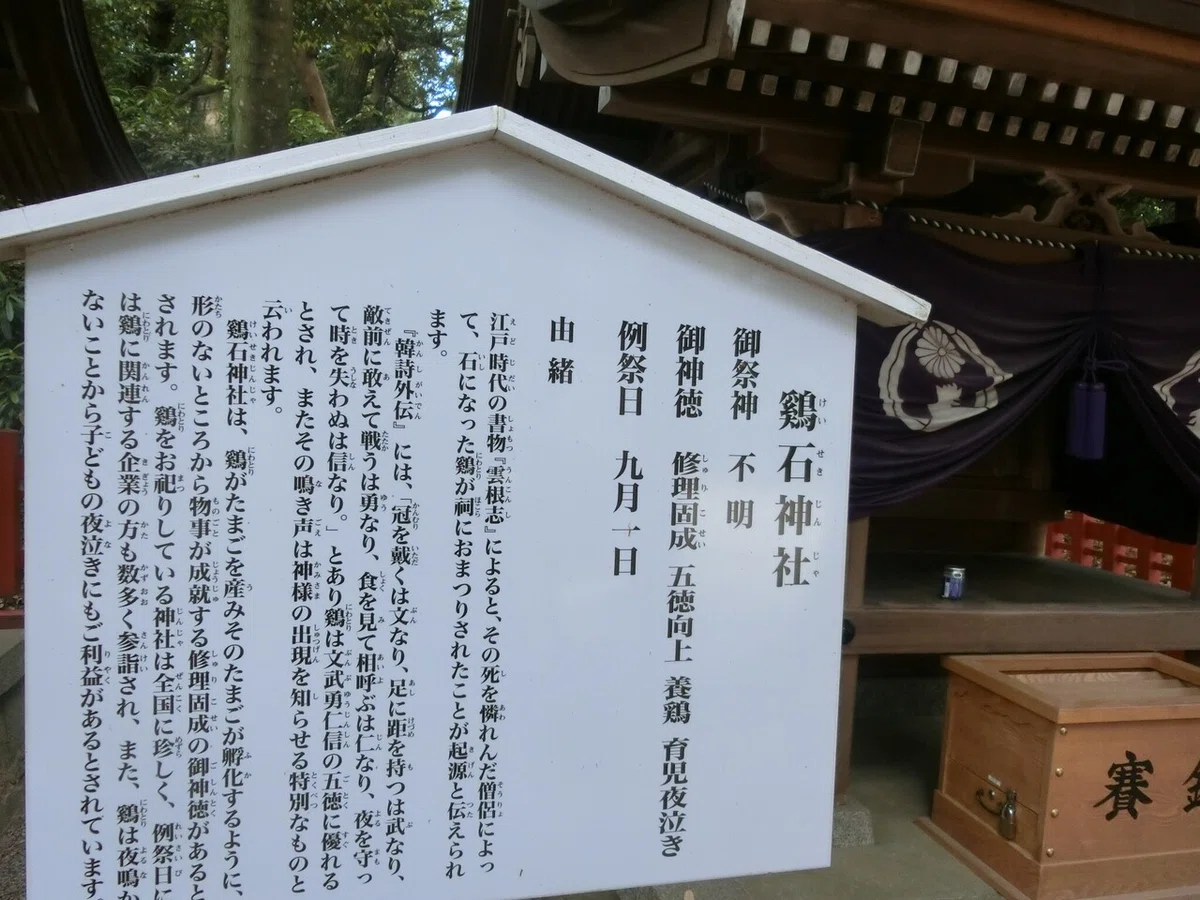 鷄石神社
御祭神　不明
御神徳　修理固成　五徳向上　養鶏　育児夜泣き
例祭日　九月一日
由緒
江戸時代の書物『雲根志』によると、その死を憐れんだ僧侶によっ
て、石になった鶏が祠におまつりされたことが起源と伝えられ
ます。
『韓詩外伝』には、「冠を戴くは文なり、足に距を持つは武なり、
敵前に敢えて戦うは勇なり、食を見て相呼ぶは仁なり、夜を守っ
て時を失わぬは信なり。」とあり鶏は文武勇仁信の五徳に優れる
とされ、またその鳴き声は神様の出現を知らせる特別なものと
云われます。
鷄石神社は、鶏がたまごを産みそのたまごが孵化するように、
形のないところから物事が成就する修理固成の御神徳があると
されます。鶏をお祀りしている神社は全国に珍しく、例祭日に
は鶏に関連する企業の方も数多く参詣され、また、鶏は夜鳴か
ないことから子どもの夜泣きにもご利益があるとされています
賽